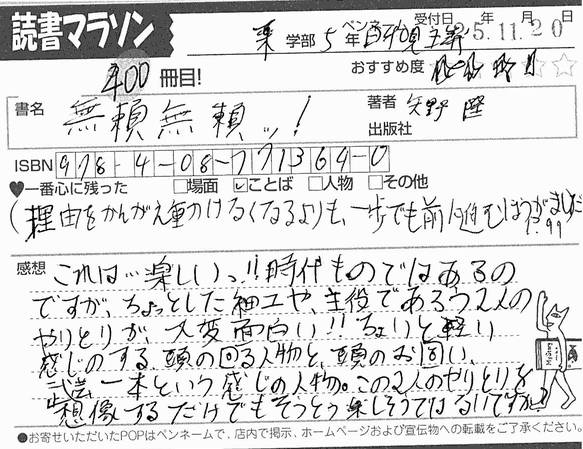 読書マラソン
薬 学部 5 年 ペンネーム 受付日 25年 11月 20日
400 冊目! おすすめ度
書名 無頼無頼ッ! 著者 矢野 隆
出版社
ISBN 978-4-08-771364-0
♥一番心に残った □場面 ☑ことば □人物 □その他
(理由をかんがえ動けなくなるよりも、一歩でも前に進むほうがましだ P.99
感想 これは…楽しいっ!!時代ものではあるの
ですが、ちょっとした細工や、主役である2人の
やりとりが、大変面白い!!ちょいと軽い
感じのする頭の回る人物と、頭のお固い、
武芸一本という感じの人物。この2人のやりとりを
想像するだけでもそうとう楽しそうではないですか!!
●お寄せいただいたPOPはペンネームで、店内で掲示、ホームページおよび宣伝物への転載をご了承ください。